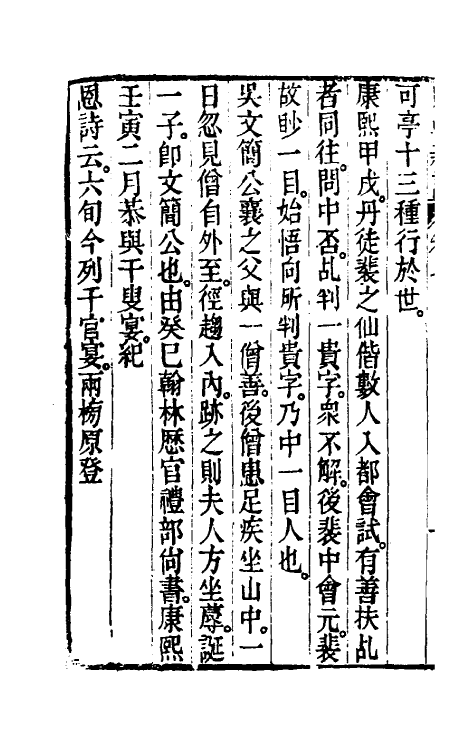 可亭十三種行於世。
康熙甲戌。丹徒裴之仙偕數人入都會試。有善扶乩
者同往。問中否。乩判一貴字。衆不解。後裴中會元。裴
故眇一目。始悟向所判貴字。乃中一目人也。
吳文簡公襄之父與一僧善。後僧患足疾坐山中。一
日忽見僧自外至。徑趨入內。跡之則夫人方坐蓐誕
一子。卽文簡公也。由癸巳翰林歷官禮部尙書。康熙
壬寅二月恭與千叟宴。紀
恩詩云。六旬今列千官宴。兩榜原登